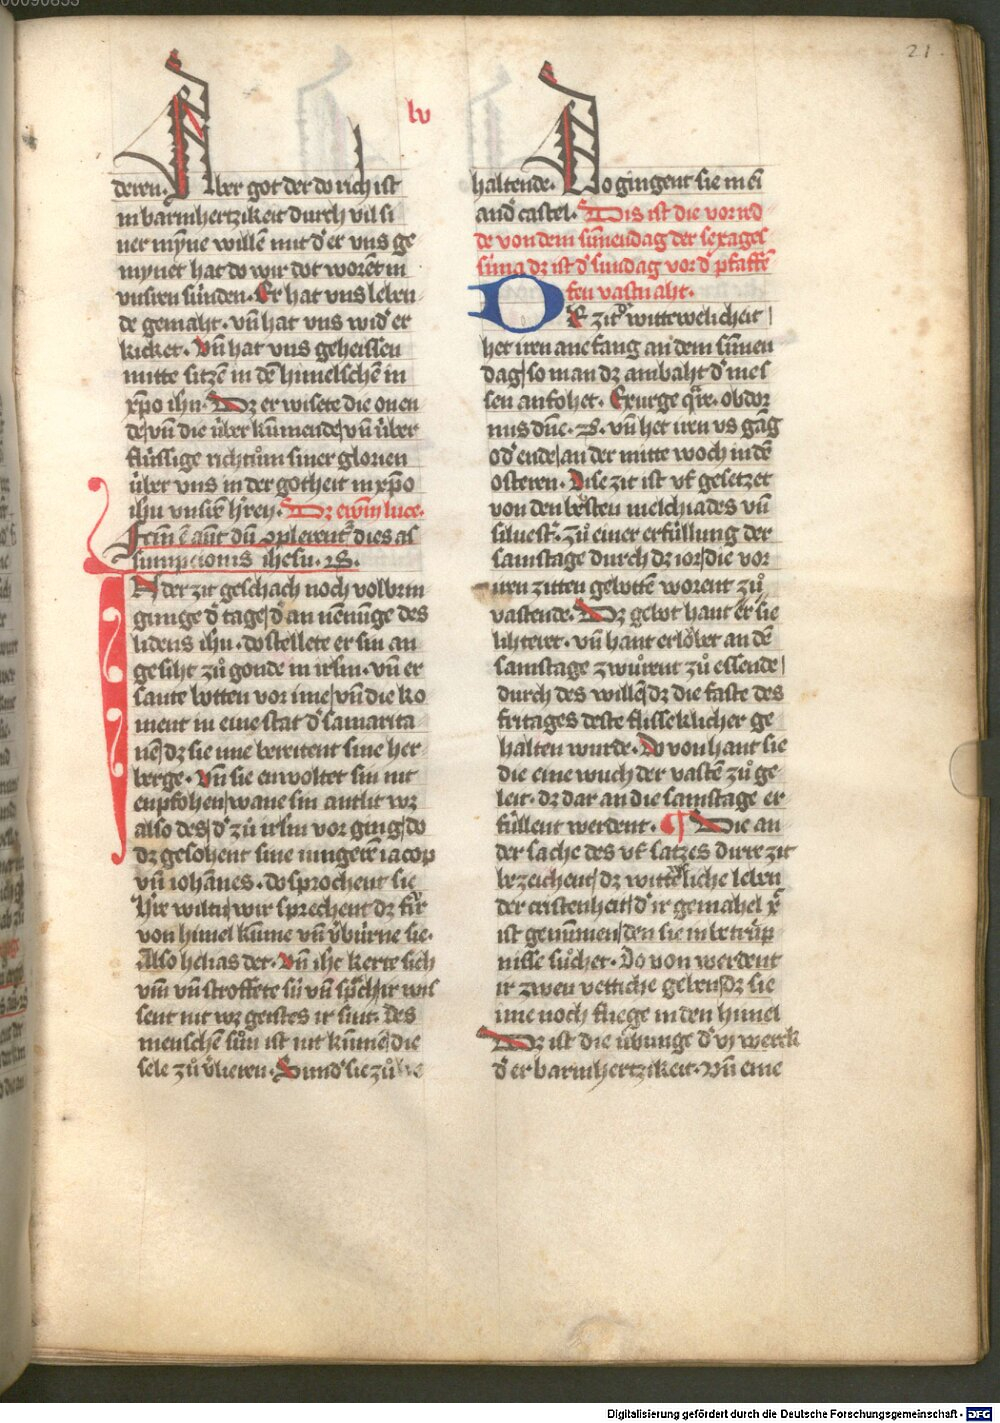 21
lv
deren. Aber got der do rich ist
in barmhertzikeit durch vil si
ner mỹne willē mit d' er vns ge
mynet hat do wir dot worēt in
vnsren sünden. Er hat vns leben
de gemaht. vñ hat vns wid' er
kicket. Vñ hat vns geheissen
mitte sitzē in dē himelschē in
xp̄o ihū. Dz er wisete die onen
de vñ die über kūmende vñ über
flüssige richtům siner glorien
über vns in der gotheit in xp̄o
ihū vnsrē h'ren. Dz ewm̄ luce.
sumpcionis ihesu. rS.
IN der zit geschach noch volbrin
gunge d' tage d' an nēnūge des
lidens ihū. do stellete er sin an
gesiht zů gonde in irlm. vñ er
sante botten vor ime vñ die ko
ment in eine stat d' samarita
nē dz sie ime bereitent sine her
berge. vñ sie enwoltet sin nit
enpfohen wane sin antlit wz
also des d' zů irlm vor ging do
dz gesohent sine iungerē iacop
vñ iohānes. do sprochent sie
Hre wiltu wir sprechent dz für
von himel kūme vñ v'bürne sie.
Also helias det. vñ ihē kerte sich
vm̄ vñ stroffete sü vñ sp̄ch ir wis
sent nit wz geistes ir sint. Des
menschē sůn ist nit kūmē die
sele zů v'lieren. Sund' sie zů be
haltende. Do gingent sie in ei
and' castel. Dis ist die vorred
de von dem sūnendag der sexages
sima dz ist d' sundag vor d' pfaffē
sen vastnaht.
DIE zit d' wittewelicheit
het iren ane fang an dem sūnen
dag so man dz ambaht d' mes
sen anfohet. Exurge qr̄e. obdor
mis dn̄e. S. vñ het iren vs gāg
od' ende an der mitte woch in dē
osteren. Dise zit ist vf gesetzet
von den bebsten melchiades vñ
silvest'. zů einer erfüllung der
samstage durch dz ior die vor
iren zitten gebotten worent zů
vastende. Dz gebot hant er sie
lihteret. vñ hant erlöbet an dē
samstage zwůrent zů essende
durch des willē dz die faste des
fritages deste flisseklicher ge
halten wurde. Do von hant sie
die eine wuch der vastē zů ge
leit. dz dar an die samstage er
füllent werdent. ¶ Die an
der sache des vf satzes dirre zit
bezeichent dz wittewliche leben
der cristenheit d' ir gemahel xr̄
ist genūmen den sie in betrüp
nisse sůchet. Do von werdent
ir zwen vettiche geben dz sie
ime noch fliege in den himel
Dz ist die übunge d' vj werck
d' er barmhertzikeit. vñ eine
Digitalisierung gefördert durch die Deutsche Forschungsgemeinschaft - DFG